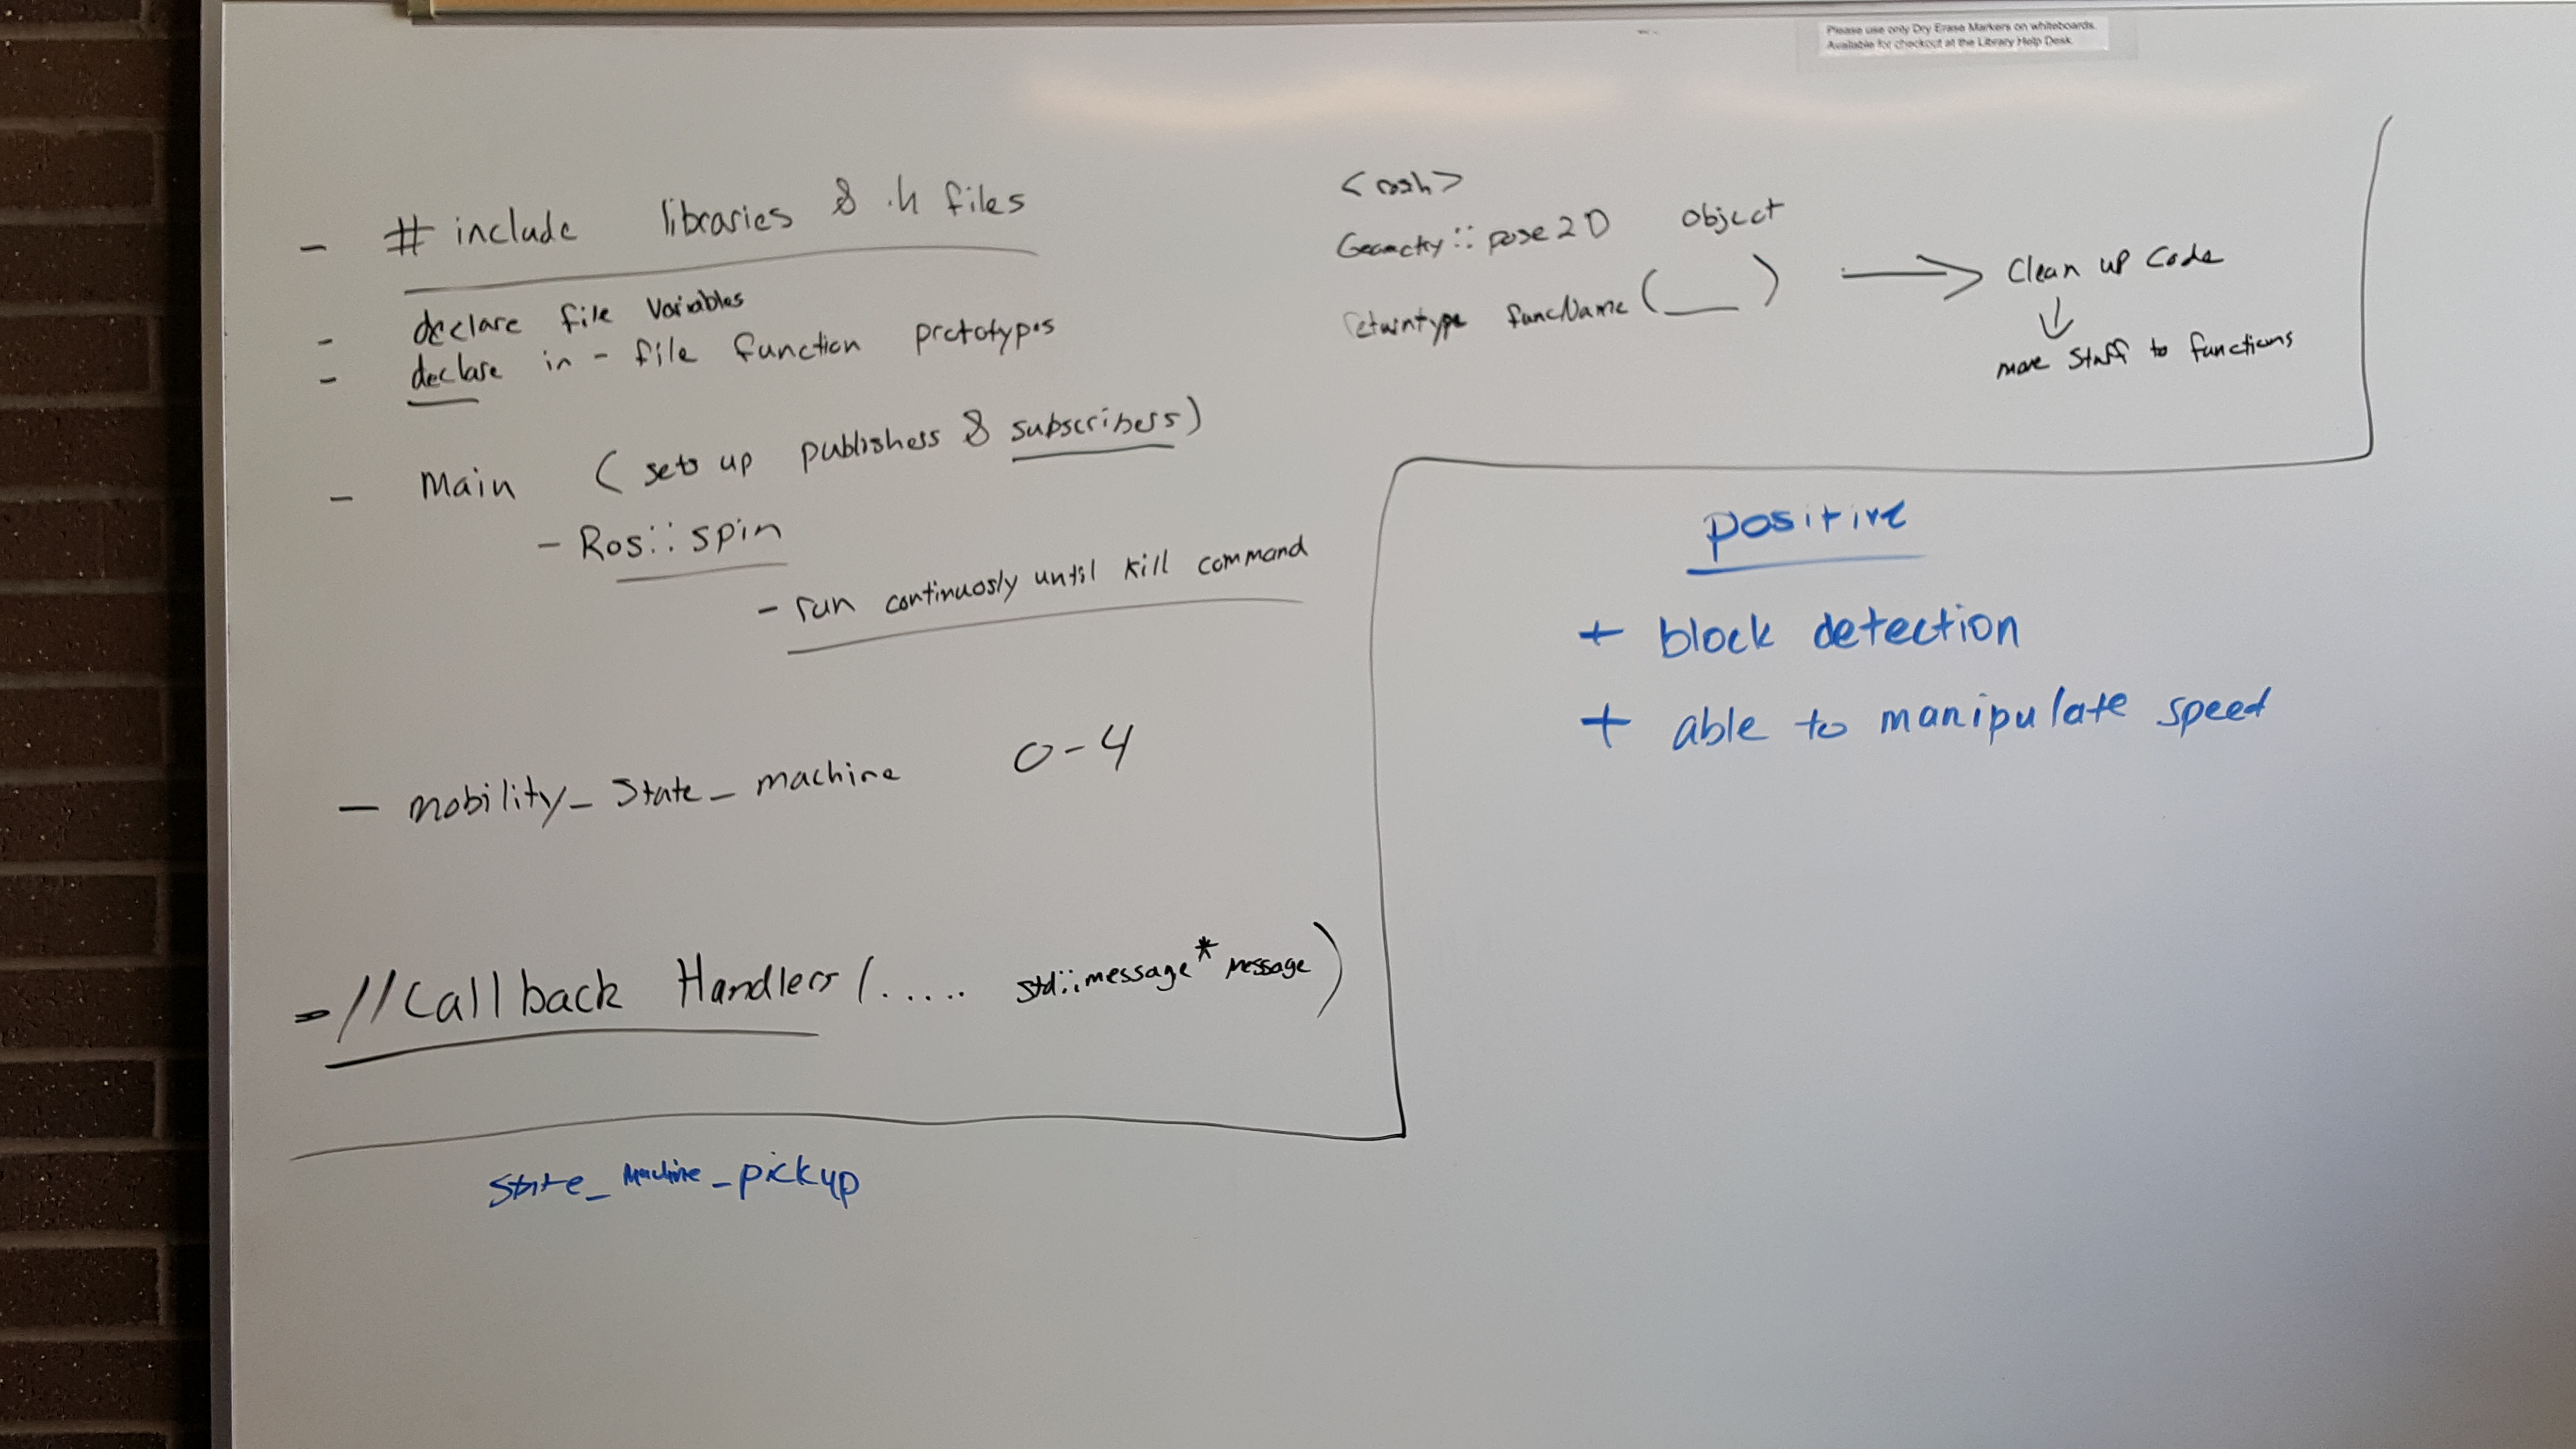 Please use only Dry Erase Markers on whiteboards.
Available for checkout at the Library Help Desk.
- # include libraries & .h files
- declare file variables
- declare in-file function prototypes
- Main (sets up publishers & subscribers)
- Ros::spin
- run continuosly until kill command
- mobility_State_machine 0-4
- //Callback Handlers (..... std::message* message)
State_Machine_pickup
Geometry::pose2D Object
returntype funcName(___) → Clean up Code
↓
more Stuff to functions
positive
+ block detection
+ able to manipulate speed